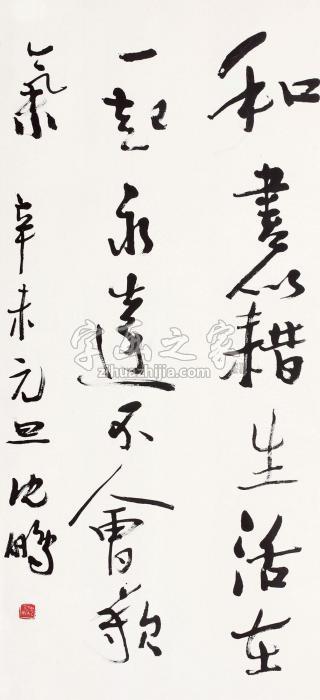 和書籍生活在
一起永遠不會歎
氣 辛未元旦 沈鵬
字画之家
zihuazhijia.com